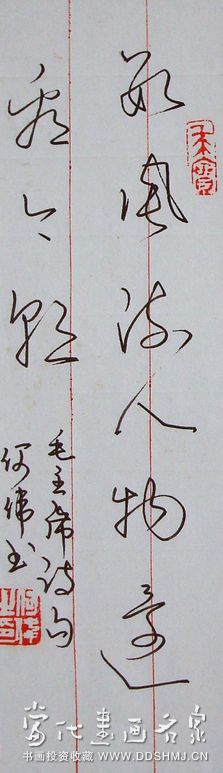 数风流人物还
看今朝
毛主席诗句
何伟书
当代书画名家
书画投资收藏 WWW.DDSHMJ.CN